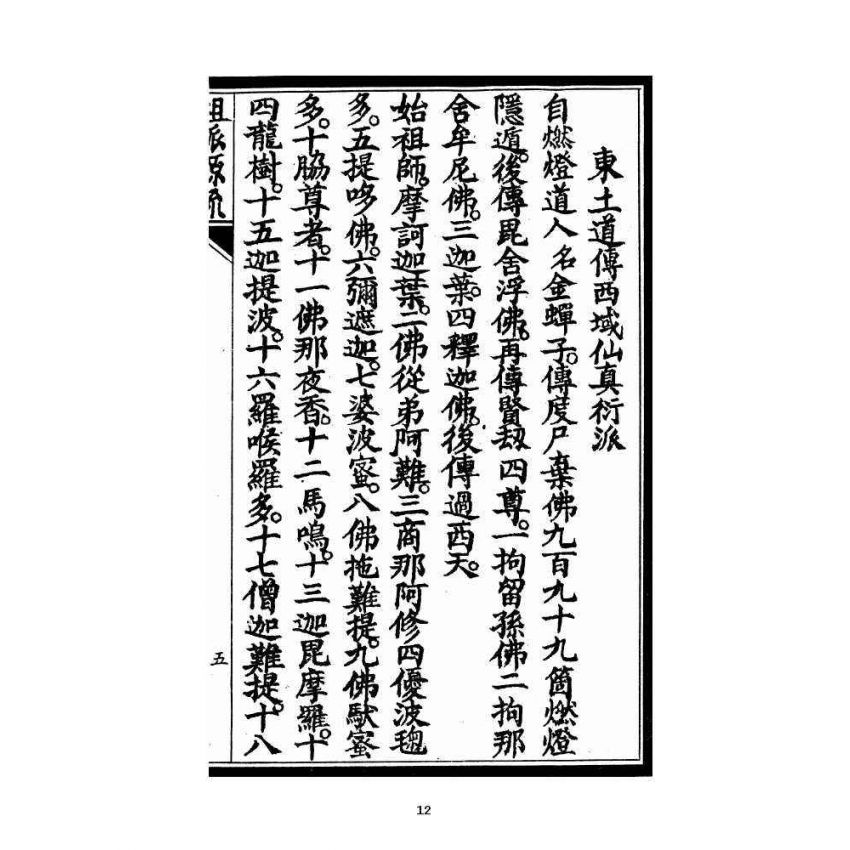 東土道傳西域仙真衍派
自燃燈道人名金蟬子。傳度尸棄佛九百九十九箇燃燈
隱遁。後傳毘舍浮佛。再傳賢劫四尊。一拘留孫佛二拘那
舍牟尼佛。三迦葉。四釋迦佛。後傳過西天。
始祖師。摩訶迦葉。二佛從弟阿難。三商那阿修四優波毱
多。五提哆佛。六彌遮迦。七婆波蜜。八佛拖難提。九佛馱蜜
多。十脇尊者。十一佛那夜香。十二馬鳴。十三迦毘摩羅。十
四龍樹。十五迦提波。十六羅喉羅多。十七僧迦難提。十八
祖派源流
五
12